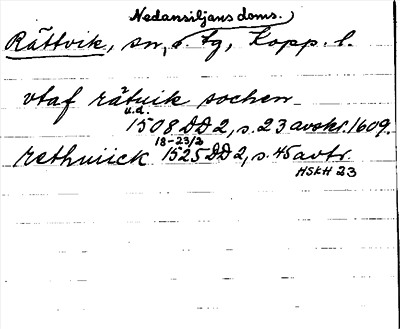 Nedansiljans doms.
Rättvik, sn, s. tg, Kopp. l.
vtaf rätuik sochen
u.d.
1508 DD 2, s. 23 avskr. 1609.
18-23/2
rethuiick 1525 DD 2, s. 45 avtr.
HSkH 23